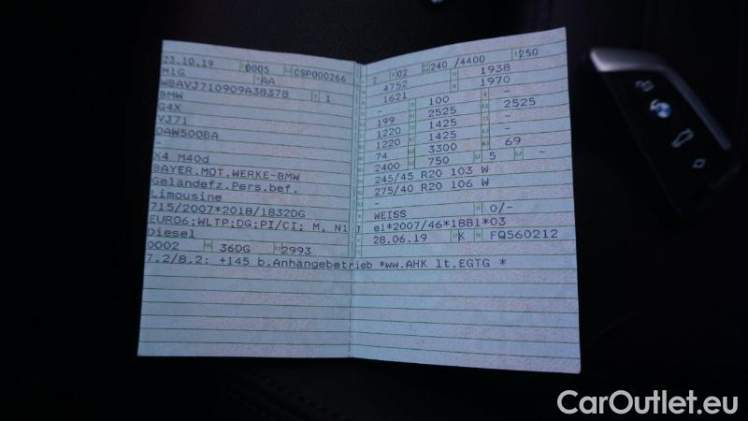 23.10.19 0005 CSP000266
M1G AA
WBAVJ710909A38378 1
BMW
G4X
VJ71
DAW500BA
-
X4 M40d
BAYER.MOT.WERKE-BMW
Geländefz.Pers.bef.
Limousine
715/2007*2018/1832DG
EURO6;WLTP;DG;PI/CI; M, N1 I
Diesel
0002 36DG 2993
7.2/8.2: +145 b.Anhängebetrieb *ww.AHK lt.EGTG *
2 02 240 /4400 250
4752 1938
1621 1970
199 100 -
1220 2525 2525
1220 1425 -
74 1425 -
2400 3300 69
750 5 -
245/45 R20 103 W
275/40 R20 106 W
-
WEISS 0/-
e1*2007/46*1881*03
28.06.19 K FQ560212
CarOutlet.eu